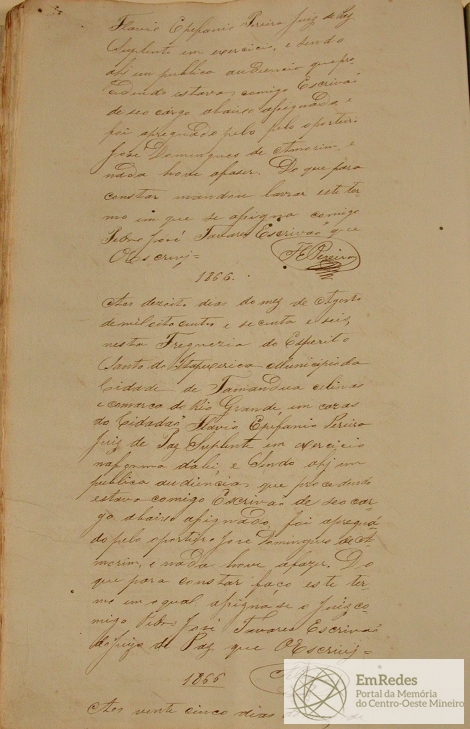 Flavio Epefanio Pereira Juiz de Paz
Suplente em exercicio, e sendo
ahi em publica audiencia que pro
cedendo estava comigo Escrivaõ
de seo cargo abaixo asignado e
foi apregados pelo pelo oporteiro
José Domingues de Amorim, e
nada hove afazer. Do que para
constar mandou lavrar este ter
mo em que se asigna comigo
José Tavares Escrivaõ que
OEscrivy=
FEPereira
1866.
Aos dezoito dias do mez de Agosto
demil oito centos e secenta e seis,
nesta Freguezia do Esperito
Santo do Itapecerica Municipio da
Cidade de Tamandua Minas
e comarca do Rio Grande, em cazas
do Cidadaõ Flavio Epefanio Pereira
Juiz de Paz Suplente em exercicio
naforma dalei, e sendo ahi em
publica audiencia, que procedendo
estava comigo Escrivaõ de seo car
go abaixo asignado, foi aprega
do pelo oporteiro José Domingues de A
morim, e nada hove afazer. Do
que para constar faço este ter
mo em oqual asigna-se o Juiz co
migo José Tavares Escrivaõ
dojuizo de Paz que OEscrivy=
1866
Aos vinte cinco dias
EmRedes
Portal da Memória
do Centro-Oeste Mineiro